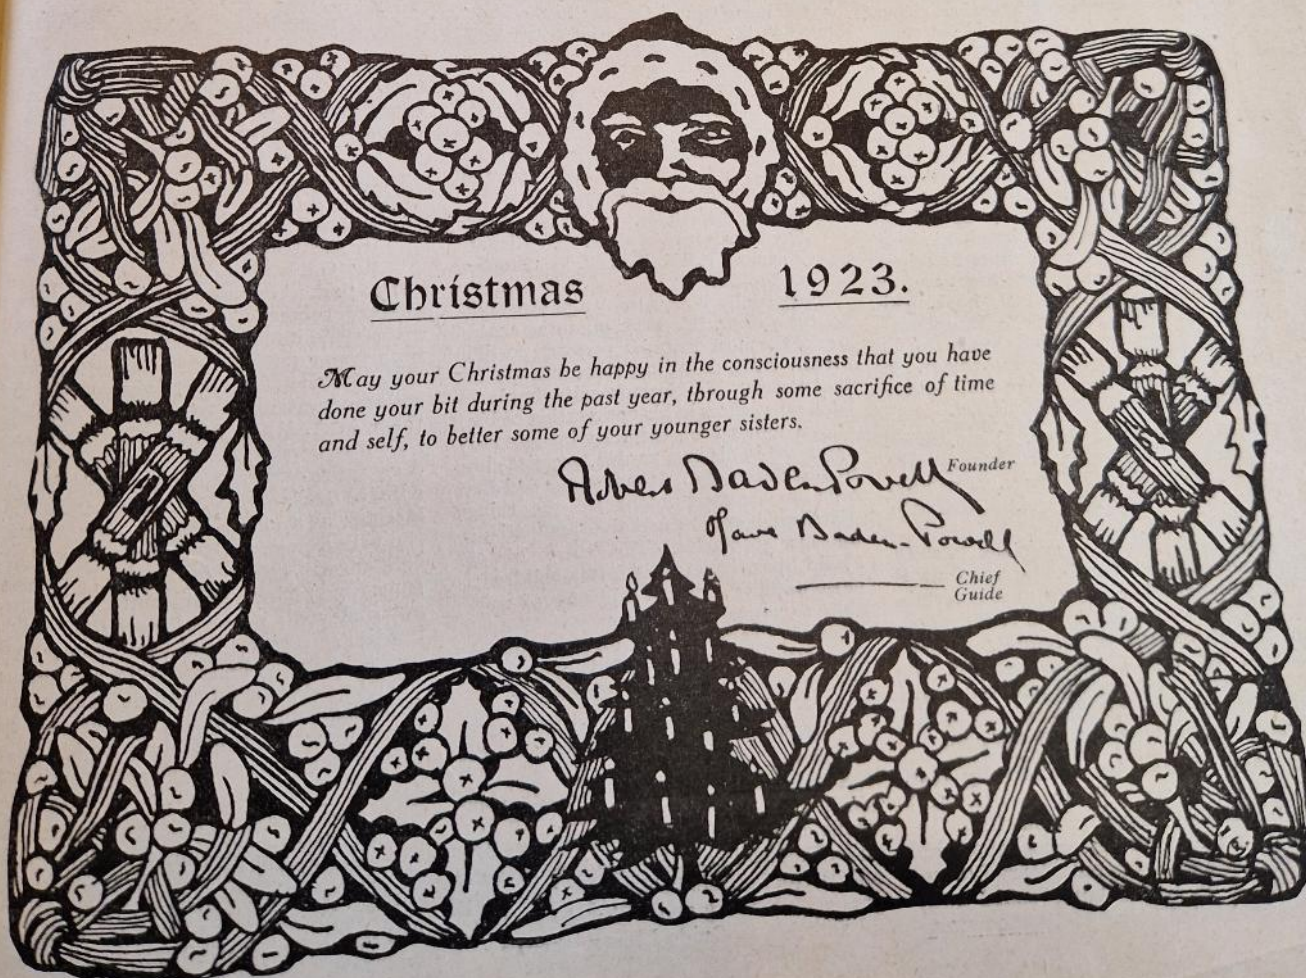 Christmas 1923.
May your Christmas be happy in the consciousness that you have
done your bit during the past year, through some sacrifice of time
and self, to better some of your younger sisters.
Robert Baden Powell Founder
Olave Baden-Powell
Chief
Guide